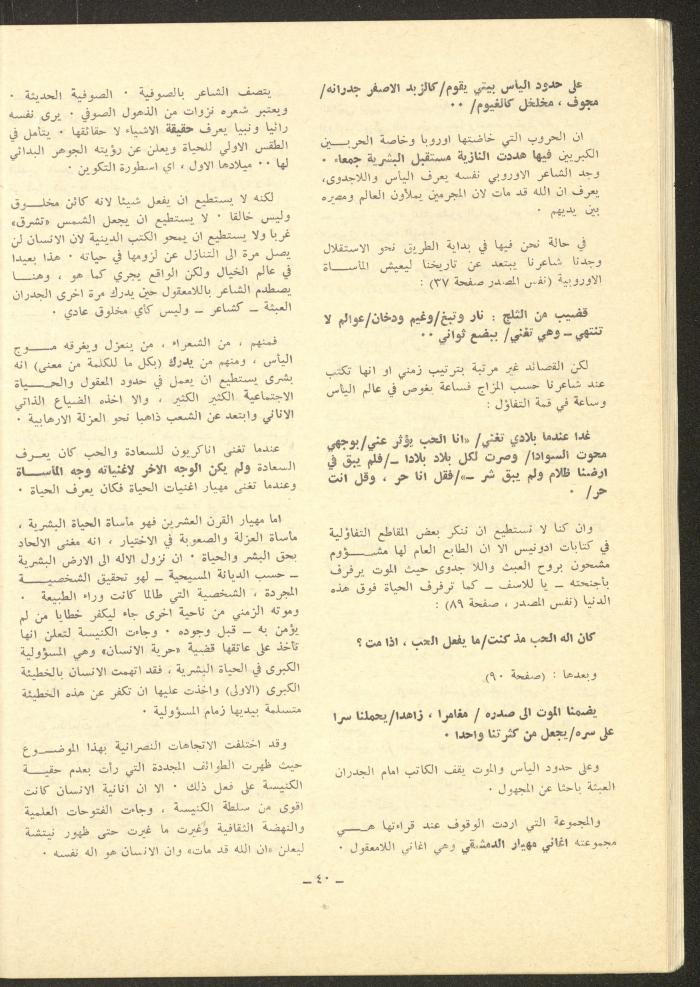 على حدود اليأس بيتي يقوم/كالزبد الاصفر جدرانه/
مجوف ، مخلخل كالغيوم/ ٠٠
ان الحروب التي خاضتها اوروبا وخاصة الحربـــين
الكبريين فيها هددت النازية مستقبل البشرية جمعاء ٠
وجد الشاعر الاوروبي نفسه يعرف اليأس واللاجدوى،
يعرف ان الله قد مات لان المجرمين يملأون العالم ومصيره
بين يديهم ٠
في حالة نحن فيها في بداية الطريق نحو الاستقلال
وجدنا شاعرنا يبتعد عن تاريخنا ليعيش المأســـاة
الاوروبية (نفس المصدر صفحة ٣٧) :
قضيب من الثلج : نار وتبغ/وغيم ودخان/عوالم لا
تنتهي ــ وهي تغني/ ببضع ثواني ٠٠
لكن القصائد غير مرتبة بترتيب زمني او انها تكتب
عند شاعرنا حسب المزاج فساعة يغوص في عالم اليأس
وساعة في قمة التفاؤل :
غدا عندما بلادي تغني/ «انا الحب يؤثر عني/بوجهي
محوت السوادا/ وصرت لكل بلاد بلادا ــ/فلم يبق في
ارضنا ظلام ولم يبق شر ــ»/فقل انا حر ، وقل انت
حر/ ٠
وان كنا لا نستطيع ان ننكر بعض المقاطع التفاؤلية
في كتابات ادونيس الا ان الطابع العام لها مشـــؤوم
مشحون بروح العبث واللا جدوى حيث الموت يرفرف
بأجنحته ــ يا للاسف ــ كما ترفرف الحياة فوق هذه
الدنيا (نفس المصدر ، صفحة ٨٩) :
كان اله الحب مذ كنت/ما يفعل الحب ، اذا مت ؟
وبعدها : (صفحة ٩٠)
يضمنا الموت الى صدره / مغامرا ، زاهدا/يحملنا سرا
على سره/يجعل من كثرتنا واحدا ٠
وعلى حدود اليأس والموت يقف الكاتب امام الجدران
العبثة باحثا عن المجهول ٠
والمجموعة التي اردت الوقوف عند قراءتها هـــي
مجموعته اغاني مهيار الدمشقي وهي اغاني اللامعقول ٠
يتصف الشاعر بالصوفية ٠ الصوفية الحديثة ٠
ويعتبر شعره نزوات من الذهول الصوفي ٠ يرى نفسه
رائيا ونبيا يعرف حقيقة الاشياء لا حقائقها ٠ يتأمل في
الطقس الاولي للحياة ويعلن عن رؤيته الجوهر البدائي
لها ٠٠ ميلادها الاول ، اي اسطورة التكوين ٠
لكنه لا يستطيع ان يفعل شيئا لانه كائن مخلـــوق
وليس خالقا ٠ لا يستطيع ان يجعل الشمس «تشرق»
غربا ولا يستطيع ان يمحو الكتب الدينية لان الانسان لن
يصل مرة الى التنازل عن لزومها في حياته ٠ هذا بعيدا
في عالم الخيال ولكن الواقع يجري كما هو ، وهنـــا
يصطدم الشاعر باللامعقول حين يدرك مرة اخرى الجدران
العبثة ــ كشاعر ــ وليس كاي مخلوق عادي ٠
فمنهم ، من الشعراء ، من ينعزل ويغرقه مـــوج
اليأس ، ومنهم من يدرك (بكل ما للكلمة من معنى) انه
بشرى يستطيع ان يعمل في حدود المعقول والحـــياة
الاجتماعية الكثير الكثير ، والا اخذه الضياع الذاتي
الاناني وابتعد عن الشعب ذاهبا نحو العزلة الارهابية ٠
عندما تغنى اناكريون للسعادة والحب كان يعـــرف
السعادة ولم يكن الوجه الاخر لاغنياته وجه المأســـاة
وعندما تغنى مهيار اغنيات الحياة فكان يعرف الحياة ٠
اما مهيار القرن العشرين فهو مأساة الحياة البشرية ،
مأساة العزلة والصعوبة في الاختيار ، انه مغنى الالحاد
بحق البشر والحياة ٠ ان نزول الاله الى الارض البشرية
ــ حسب الديانة المسيحية ــ لهو تحقيق الشخصيـــة
المجردة ، الشخصية التي طالما كانت وراء الطبيعة ٠
وموته الزمني من ناحية اخرى جاء ليكفر خطايا من لم
يؤمن به ــ قبل وجوده ٠ وجاءت الكنيسة لتعلن انها
تأخذ على عاتقها قضية «حرية الانسان» وهي المسؤولية
الكبرى في الحياة البشرية ، فقد اتهمت الانسان بالخطيئة
الكبرى (الاولى) واخذت عليها ان تكفر عن هذه الخطيئة
متسلمة بيديها زمام المسؤولية ٠
وقد اختلفت الاتجاهات النصرانية بهذا الموضـــوع
حيث ظهرت الطوائف المجددة التي رأت بعدم حقيـــة
الكنيسة على فعل ذلك ٠ الا ان انانية الانسان كانت
اقوى من سلطة الكنيسة ، وجاءت الفتوحات العلمية
والنهضة الثقافية وغيرت ما غيرت حتى ظهور نيتشة
ليعلن «ان الله قد مات» وان الانسان هو اله نفسه ٠
ــ ٤٠ ــ